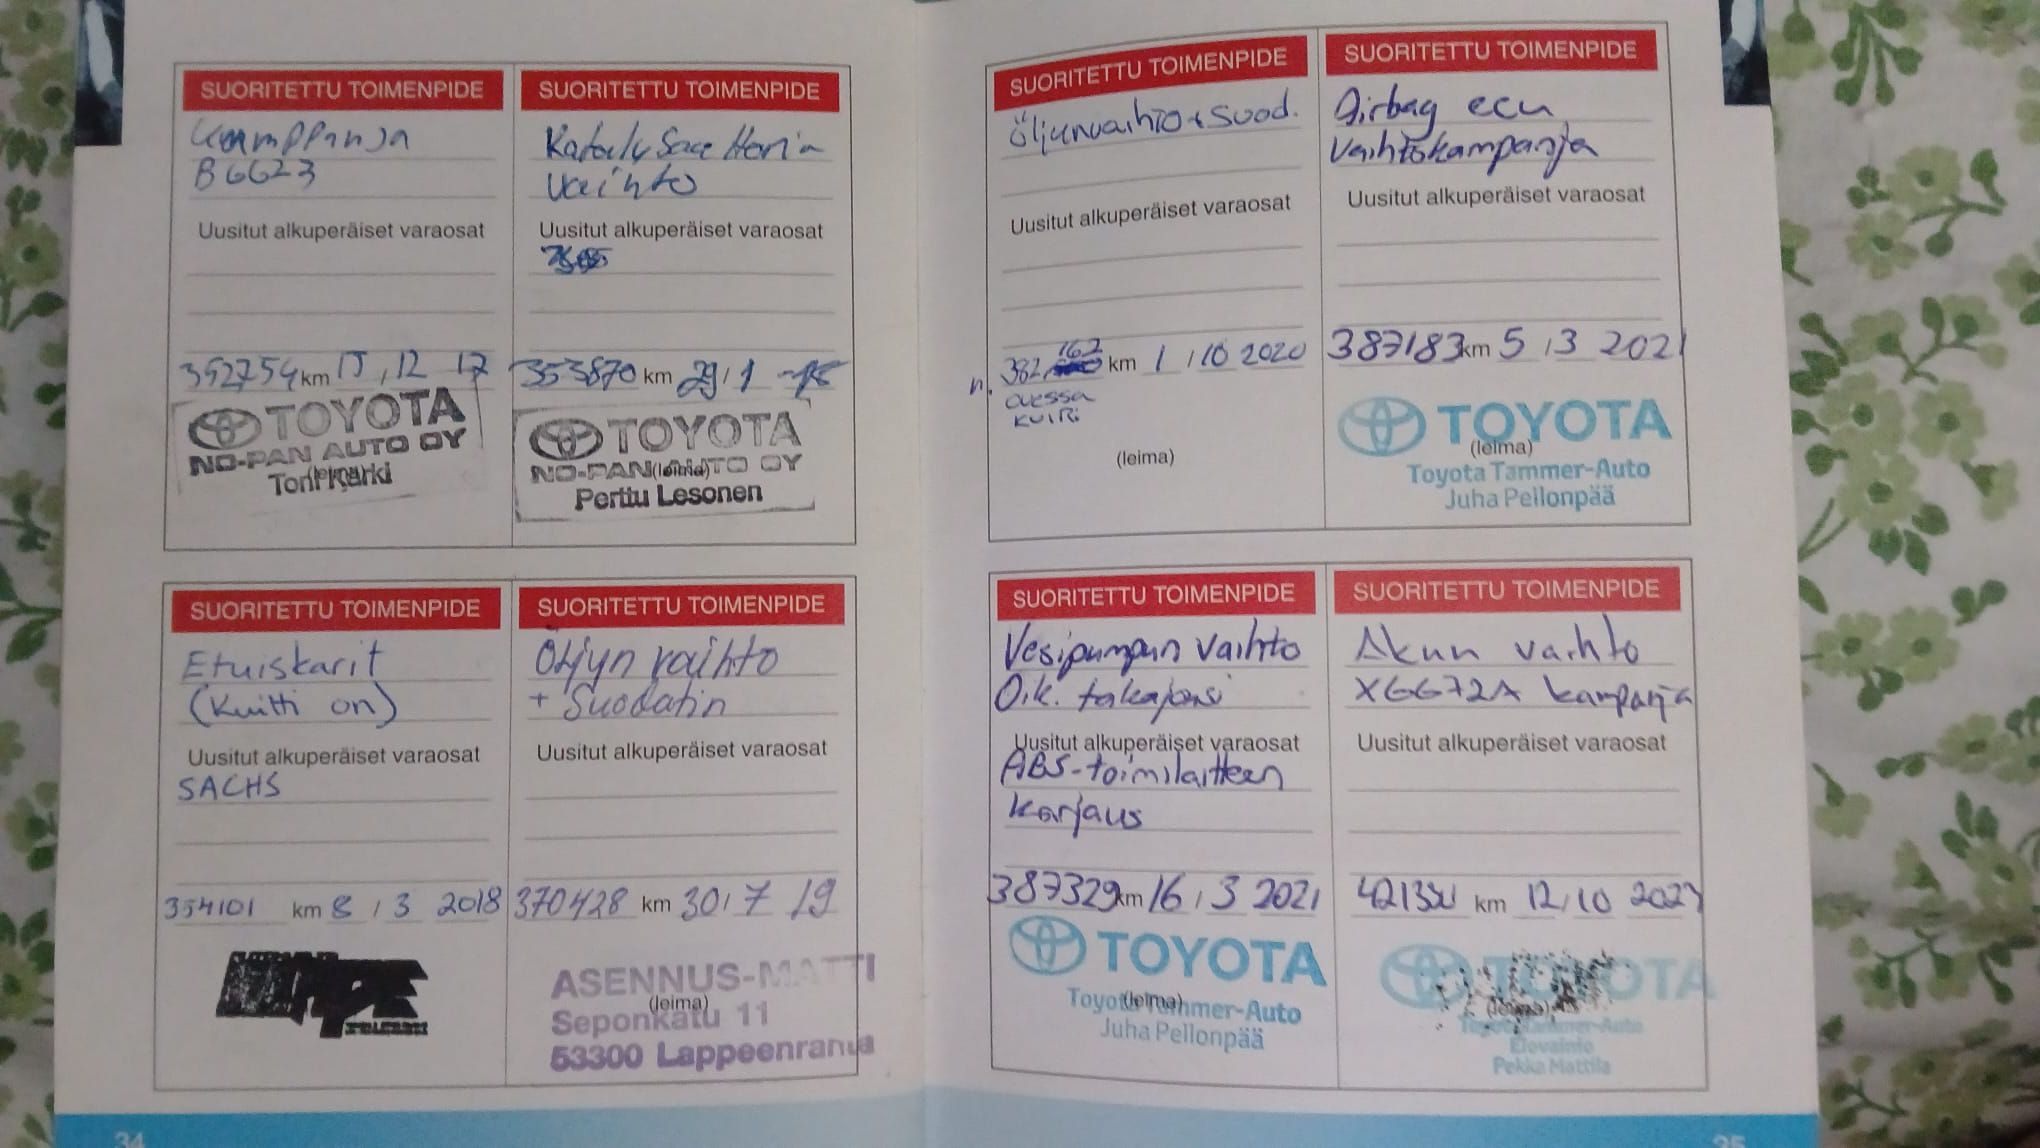 SUORITETTU TOIMENPIDE
Kamppanja
BGG23
Uusitut alkuperäiset varaosat
352754 km 15, 12 17
TOYOTA
NO-PAN AUTO OY
Toni Karki
SUORITETTU TOIMENPIDE
Katalysaattorin
vaihto
Uusitut alkuperäiset varaosat
353870 km 29/1 -18
TOYOTA
NO-PAN AUTO OY
(leima)
Perttu Lesonen
SUORITETTU TOIMENPIDE
Etuiskarit
(Kuitti on)
Uusitut alkuperäiset varaosat
SACHS
354101 km 8 / 3 2018
SUORITETTU TOIMENPIDE
Öljyn vaihto
+ Suodatin
Uusitut alkuperäiset varaosat
370428 km 30/7 19
ASENNUS-MATTI
(leima)
Seponkatu 11
53300 Lappeenranta
34
SUORITETTU TOIMENPIDE
Öljynvaihto + Suod.
Uusitut alkuperäiset varaosat
n. 382 162 km 1 / 10 2020
ovessa
KUIRI
(leima)
SUORITETTU TOIMENPIDE
Airbag ecu
vaihtokampanja
Uusitut alkuperäiset varaosat
387183 km 5 / 3 2021
TOYOTA
(leima)
Toyota Tammer-Auto
Juha Pellonpää
SUORITETTU TOIMENPIDE
Vesipumpun vaihto
Oik. takajousi
Uusitut alkuperäiset varaosat
ABS-toimilaitteen
korjaus
387329 km 16 / 3 2021
TOYOTA
(leima)
Toyota Tammer-Auto
Juha Pellonpää
SUORITETTU TOIMENPIDE
Akun vaihto
XGG72A kampanja
Uusitut alkuperäiset varaosat
km 12/10
TOYOTA
(leima)
Toyota Tammer-Auto
Elovainio
Pekka Mattila
35